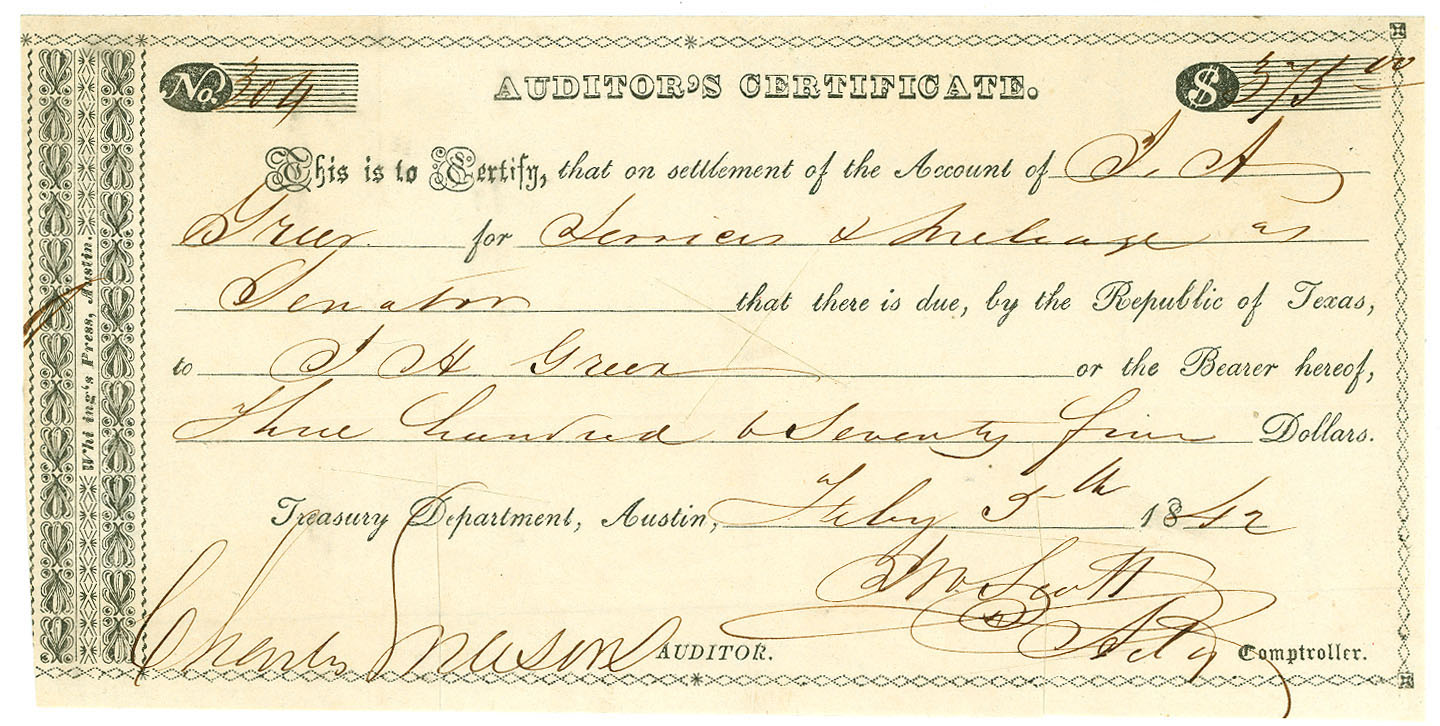 No. 304 AUDITOR'S CERTIFICATE. $ 375 00
This is to Certify, that on settlement of the Account of J. A
Greer for Services & Mileage as
Senator that there is due, by the Republic of Texas,
to J A Greer or the Bearer hereof,
Three hundred & Seventy five Dollars.
Treasury Department, Austin, Feby 5th 1842
Scott
Charles Mason AUDITOR. Comptroller.
Whiting's Press, Austin.